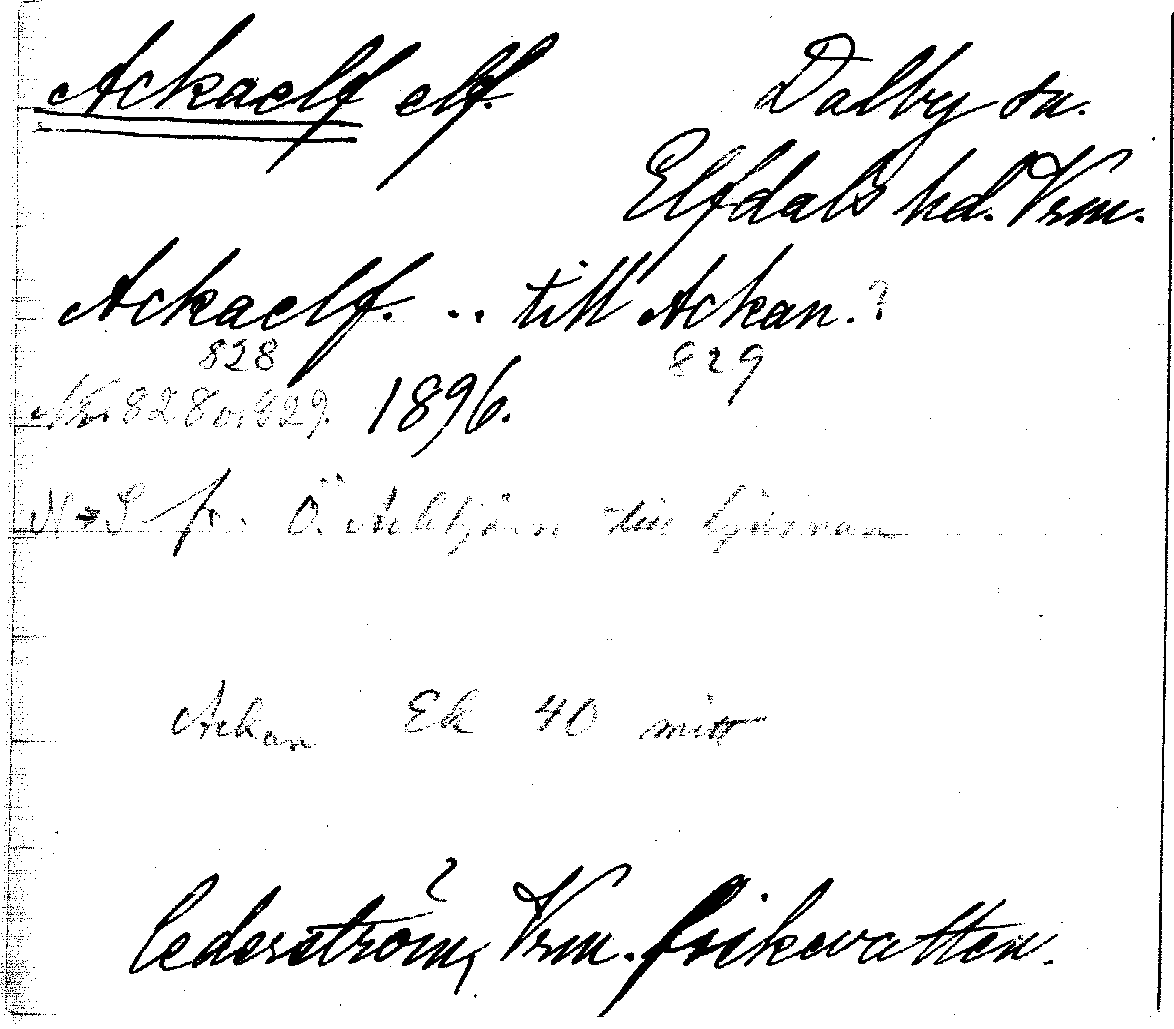 Ackaelf elf. Dalby sn.
Elfdals hd. Vrm.
Ackaelf. .. till Ackan.?
828 829
Nr 828 o. 829. 1896.
N→S fr. Ö. Acktjärn till Ljusnan
Ackan Ek 40 mitt
Cederström, Vrm. fiskevatten.